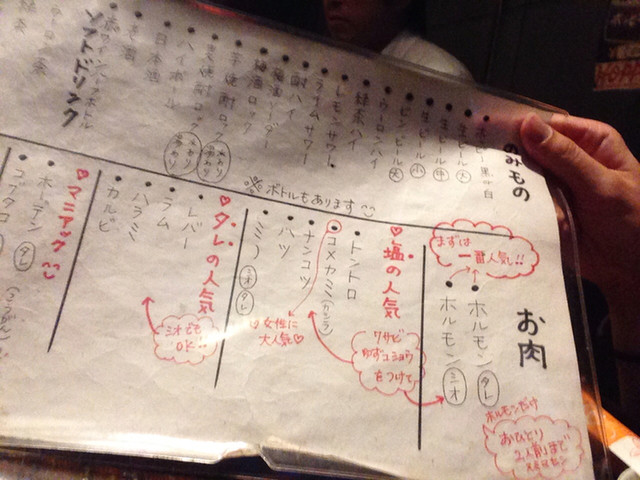 のみもの
ホッピー黒or白
生ビール大
生ビール中
生ビール小
ビンビール大
ウーロンハイ
緑茶ハイ
レモンサワー
ライムサワー
酎ハイ
梅酒ソーダー
梅酒ロック
芋焼酎ロック 水わり 湯わり
麦焼酎ロック 水わり 湯わり
ハイボール
日本酒
ソフトドリンク
ボトルもあります
お肉
まずは
一番人気!!
ホルモン タレ
ホルモン シオ
ホルモンだけ
おひとり
2人前まで
♡塩の人気
トントロ
コメカミ(カシラ)
ナンコツ
ハツ
ミノ シオ タレ
ワサビ
ゆずコショウ
をつけて
♡女性に
大人気♡
♡タレの人気
レバー
ラム
ハラミ
カルビ
シオでも
OK!!
♡マニアック
ホーデン タレ
コブクロ